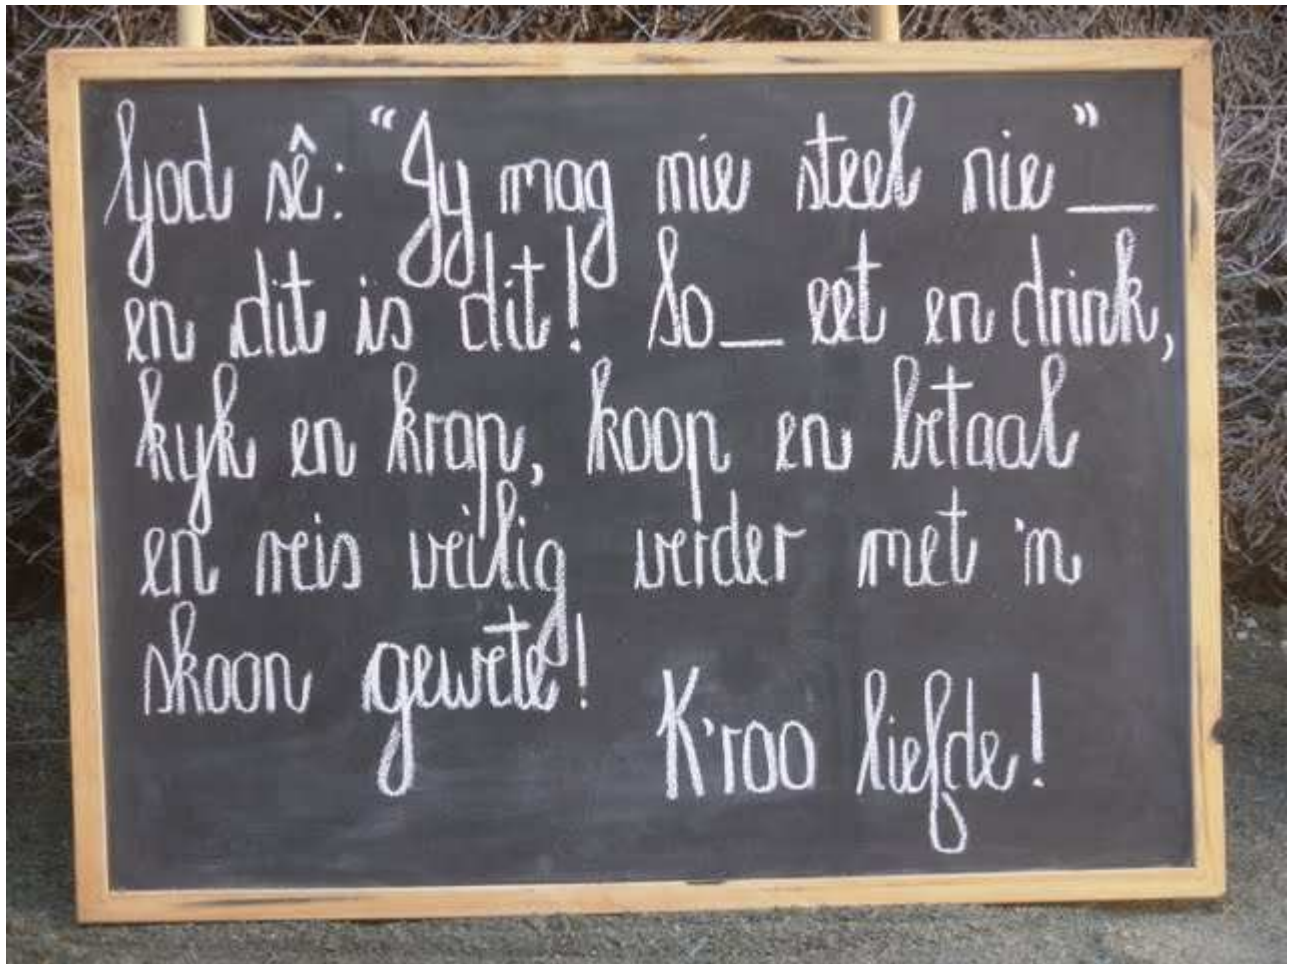 God sê: "Jy mag nie steel nie" __
en dit is dit! So __ eet en drink,
kyk en krap, koop en betaal
en reis veilig verder met 'n
skoon gewete!
K'roo liefde!